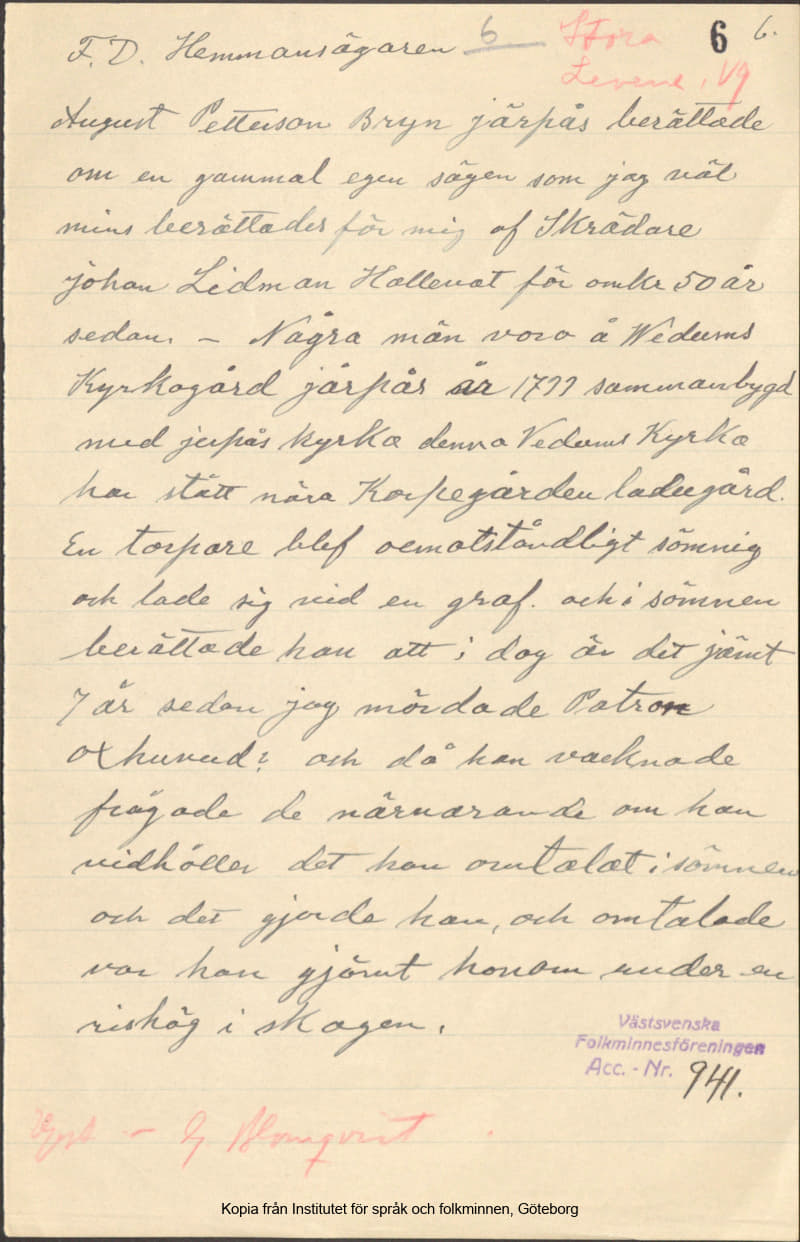 F. D. Hemmansägaren 6 Stora 6 6.
Levene, Vg
August Petterson Bryn järpås berättade
om en gammal egen sägen som jag väl
mins berättades för mig af Skrädare
johan Lidman Hallevat för omkr 50 år
sedan. – Några män voro å Wedums
Kyrkogård järpås är 1777 sammanbygd
med jerpås kyrka denna Vedums Kyrka
har stått nära Korpegården ladugård.
En torpare blef oemotståndligt sömnig
och lade sig vid en graf. och i sömnen
berättade han att i dag är det jämt
7 år sedan jag mördade Patron
Oxhuvud? och då han vacknade
frågade de närvarande om han
vidhöller det han omtalat i sömnen
och det gjorde han, och omtalade
var han gjömt honom under en
rishög i skogen.
Västsvenska
Folkminnesföreningen
Acc. - Nr. 941.
– G Blomqvist
Kopia från Institutet för språk och folkminnen, Göteborg